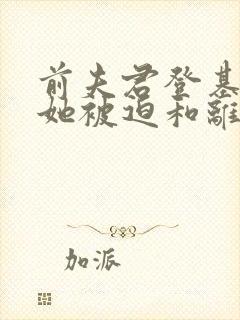 前夫君登基
她被迫和離
加派